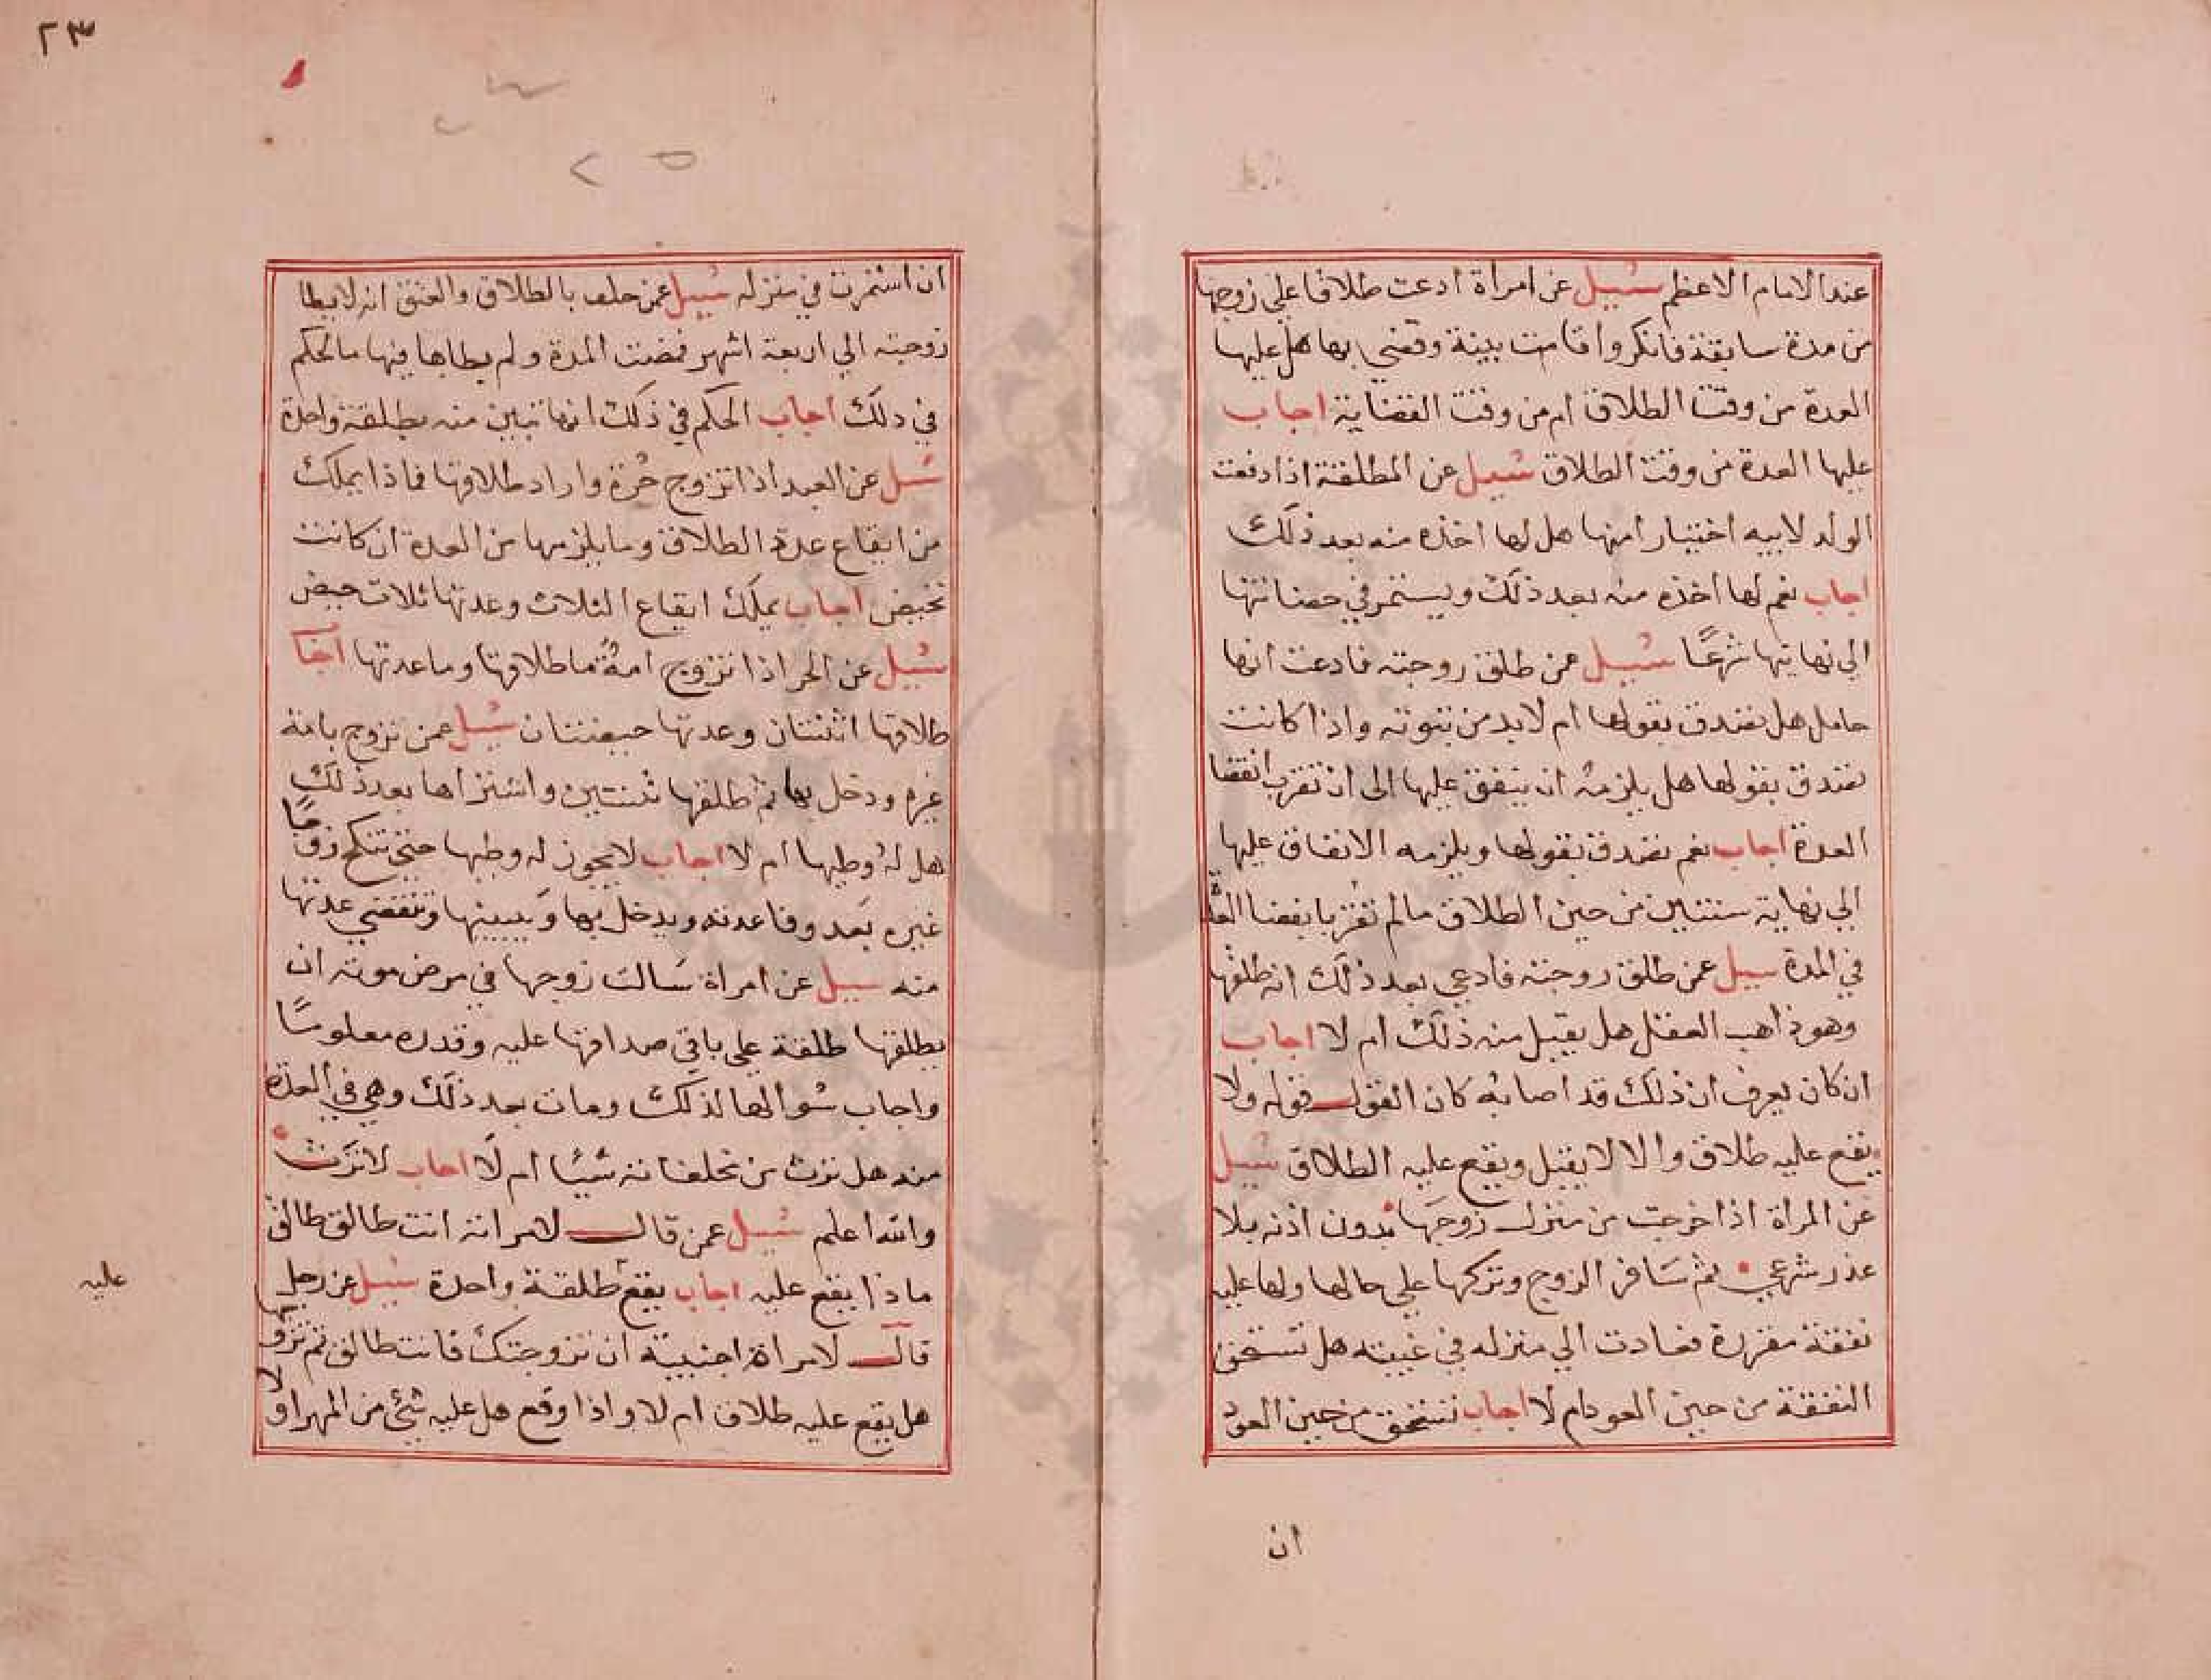 عند الامام الاعظم سئيل عن امراة ادعت طلاقا علي زوجها
من مدة سابقة فانكر واقامت بينة وقضي بها هل عليها
العدة من وقت الطلاق ام من وقت القضاية اجاب
عليها العدة من وقت الطلاق سئيل عن المطلقة اذا دفعت
الولد لابيه اختيارا منها هل لها اخذه منه بعد ذلك
اجاب نعم لها اخذه منه بعد ذلك ويستمر في حضانتها
الي نهايتها شرعًا سئيل عمن طلق زوجته فادعت انها
حامل هل تصدق بقولها ام لابد من ثبوته واذا كانت
تصدق بقولها هل يلزمه ان ينفق عليها الى ان تقر بانقضا
العدة اجاب نعم تصدق بقولها ويلزمه الانفاق عليها
الي نهاية سنتين من حين الطلاق مالم تقر بانقضا العدة
في المدة سيل عمن طلق زوجته فادعي بعد ذلك انه طلقها
وهو ذاهب العقل هل يقبل منه ذلك ام لا اجاب
ان كان يعرف ان ذلك قد اصابه كان القول قوله ولا
يقع عليه طلاق والا لا يقبل ويقع عليه الطلاق سئيل
عن المراة اذا خرجت من منزل زوجها بدون اذنه بلا
عذر شرعي ثم سافر الزوج وتركها علي حالها ولها عليه
نفقة مقررة فعادت الي منزله في غيبته هل تستحق
النفقة من حين العود ام لا اجاب تستحق من حين العود
ان
٢٣
ان استمرت في منزله سئيل عمن حلف بالطلاق والعتق انه لا يطا
زوجته الي اربعة اشهر فمضت المدة ولم يطاها فيها ما الحكم
في ذلك اجاب الحكم في ذلك انها تبين منه بطلقة واحدة
سئل عن العبد اذا تزوج حُرة واراد طلاقها فماذا يملك
من ايقاع عدة الطلاق وما يلزمها من العدة ان كانت
تحيض اجاب يملك ايقاع الثلاث وعدتها ثلاث حيض
سئيل عن الحر اذا تزوج امةً ما طلاقها وما عدتها اجاب
طلاقها اثنتان وعدتها حيضتان سئيل عمن تزوج بامة
غيره ودخل بها ثم طلقها ثنتين واشتراها بعد ذلك
هل له وطيها ام لا اجاب لا يجوز له وطيها حتي تنكح زوجًا
غيره بعد وفا عدته ويدخل بها ويبينها وتنقضي عدتها
منه سيل عن امراة سَالت زوجها في مرض موته ان
يطلقها طلقة علي باقي صداقها عليه وقدره معلومًا
واجاب سُوالها لذلك ومات بعد ذلك وهي في العدة
منه هل ترث من تخلفاته شيئا ام لا اجاب لا ترث
والله اعلم سئيل عمن قال لامراته انت طالق طالق
ماذا يقع عليه اجاب يقع طلقة واحدة سئيل عن رجل
قال لامراة اجنبية ان تزوجتك فانت طالق ثم تزوجها
هل يقع عليه طلاق ام لا واذا وقع هل عليه شئ من المهر او لا
عليه